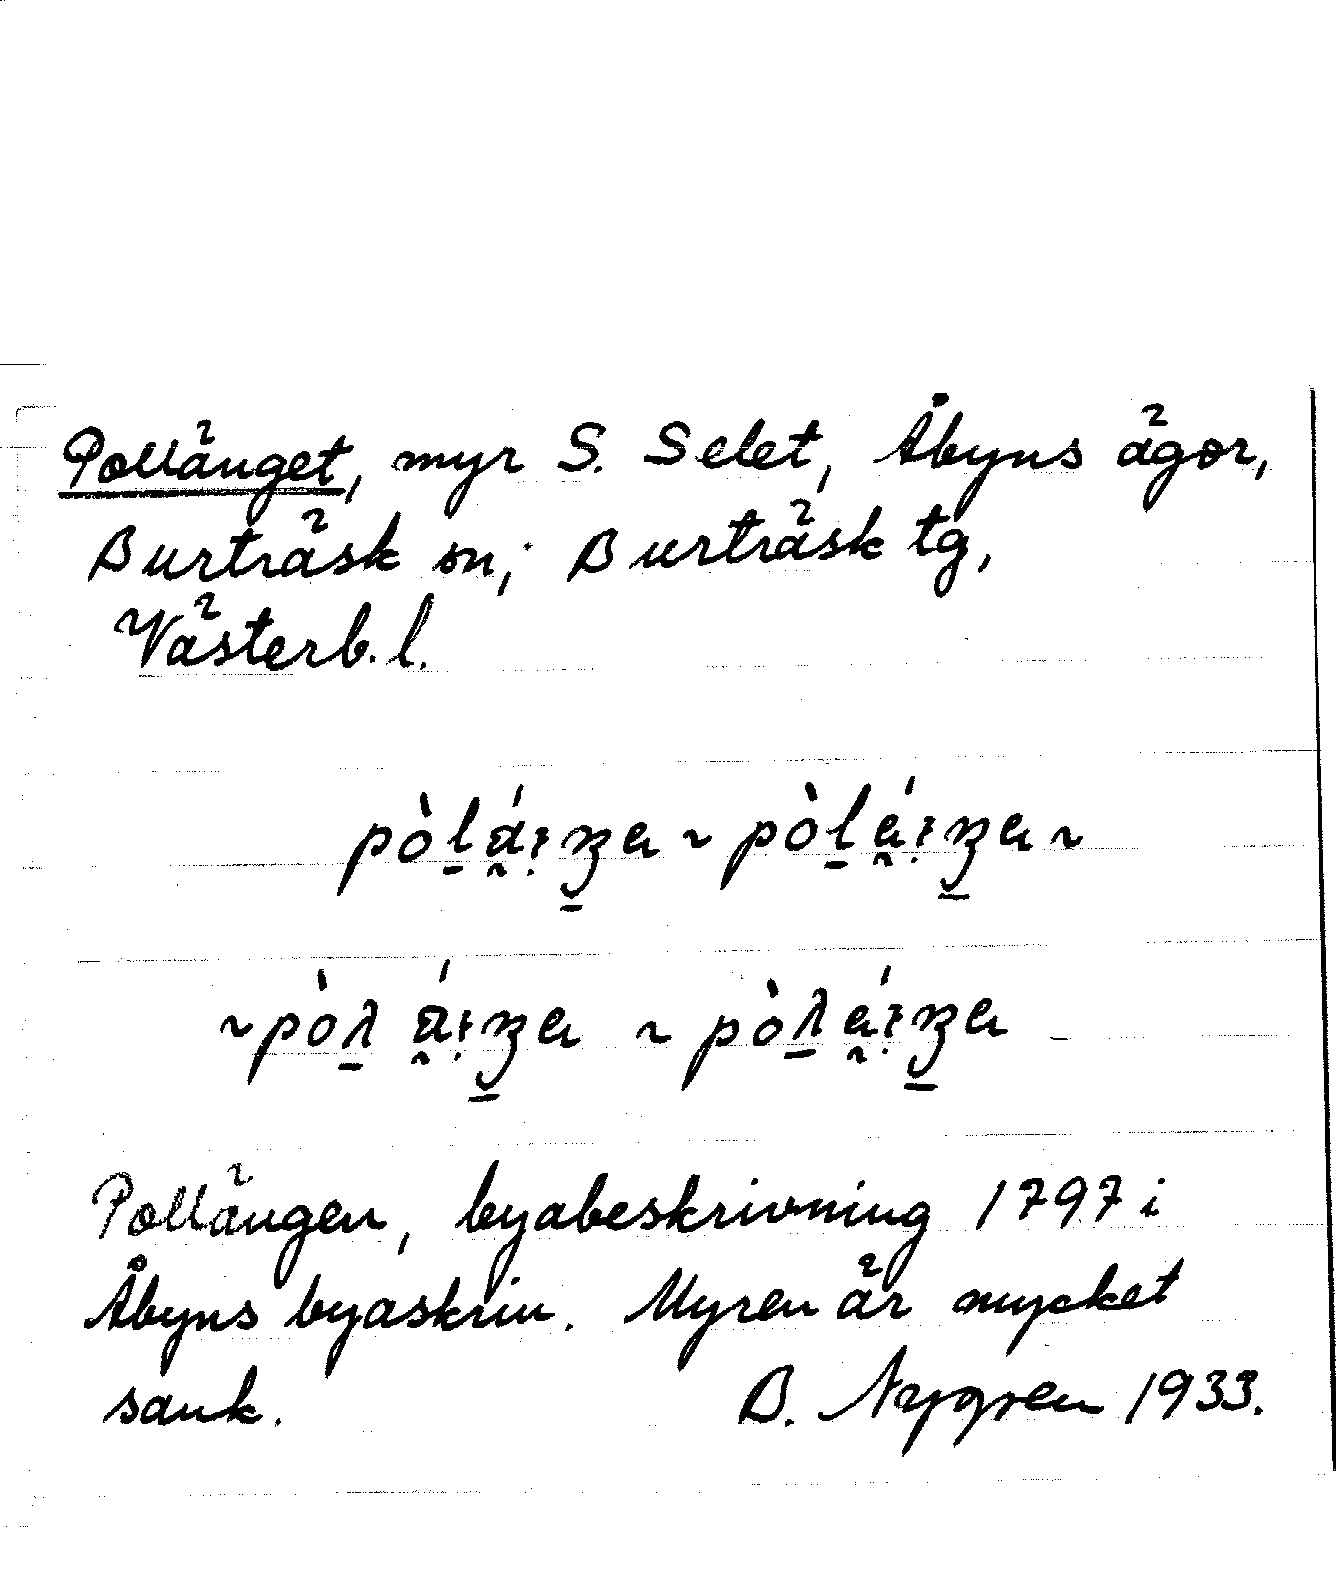 Pollänget, myr S. Selet, Åbyns ägor,
Burträsk sn; Burträsk tg,
Västerb. l.
Pollängen, byabeskrivning 1797 i
Åbyns byaskrin. Myren är mycket
sank. B. Nygren 1933.